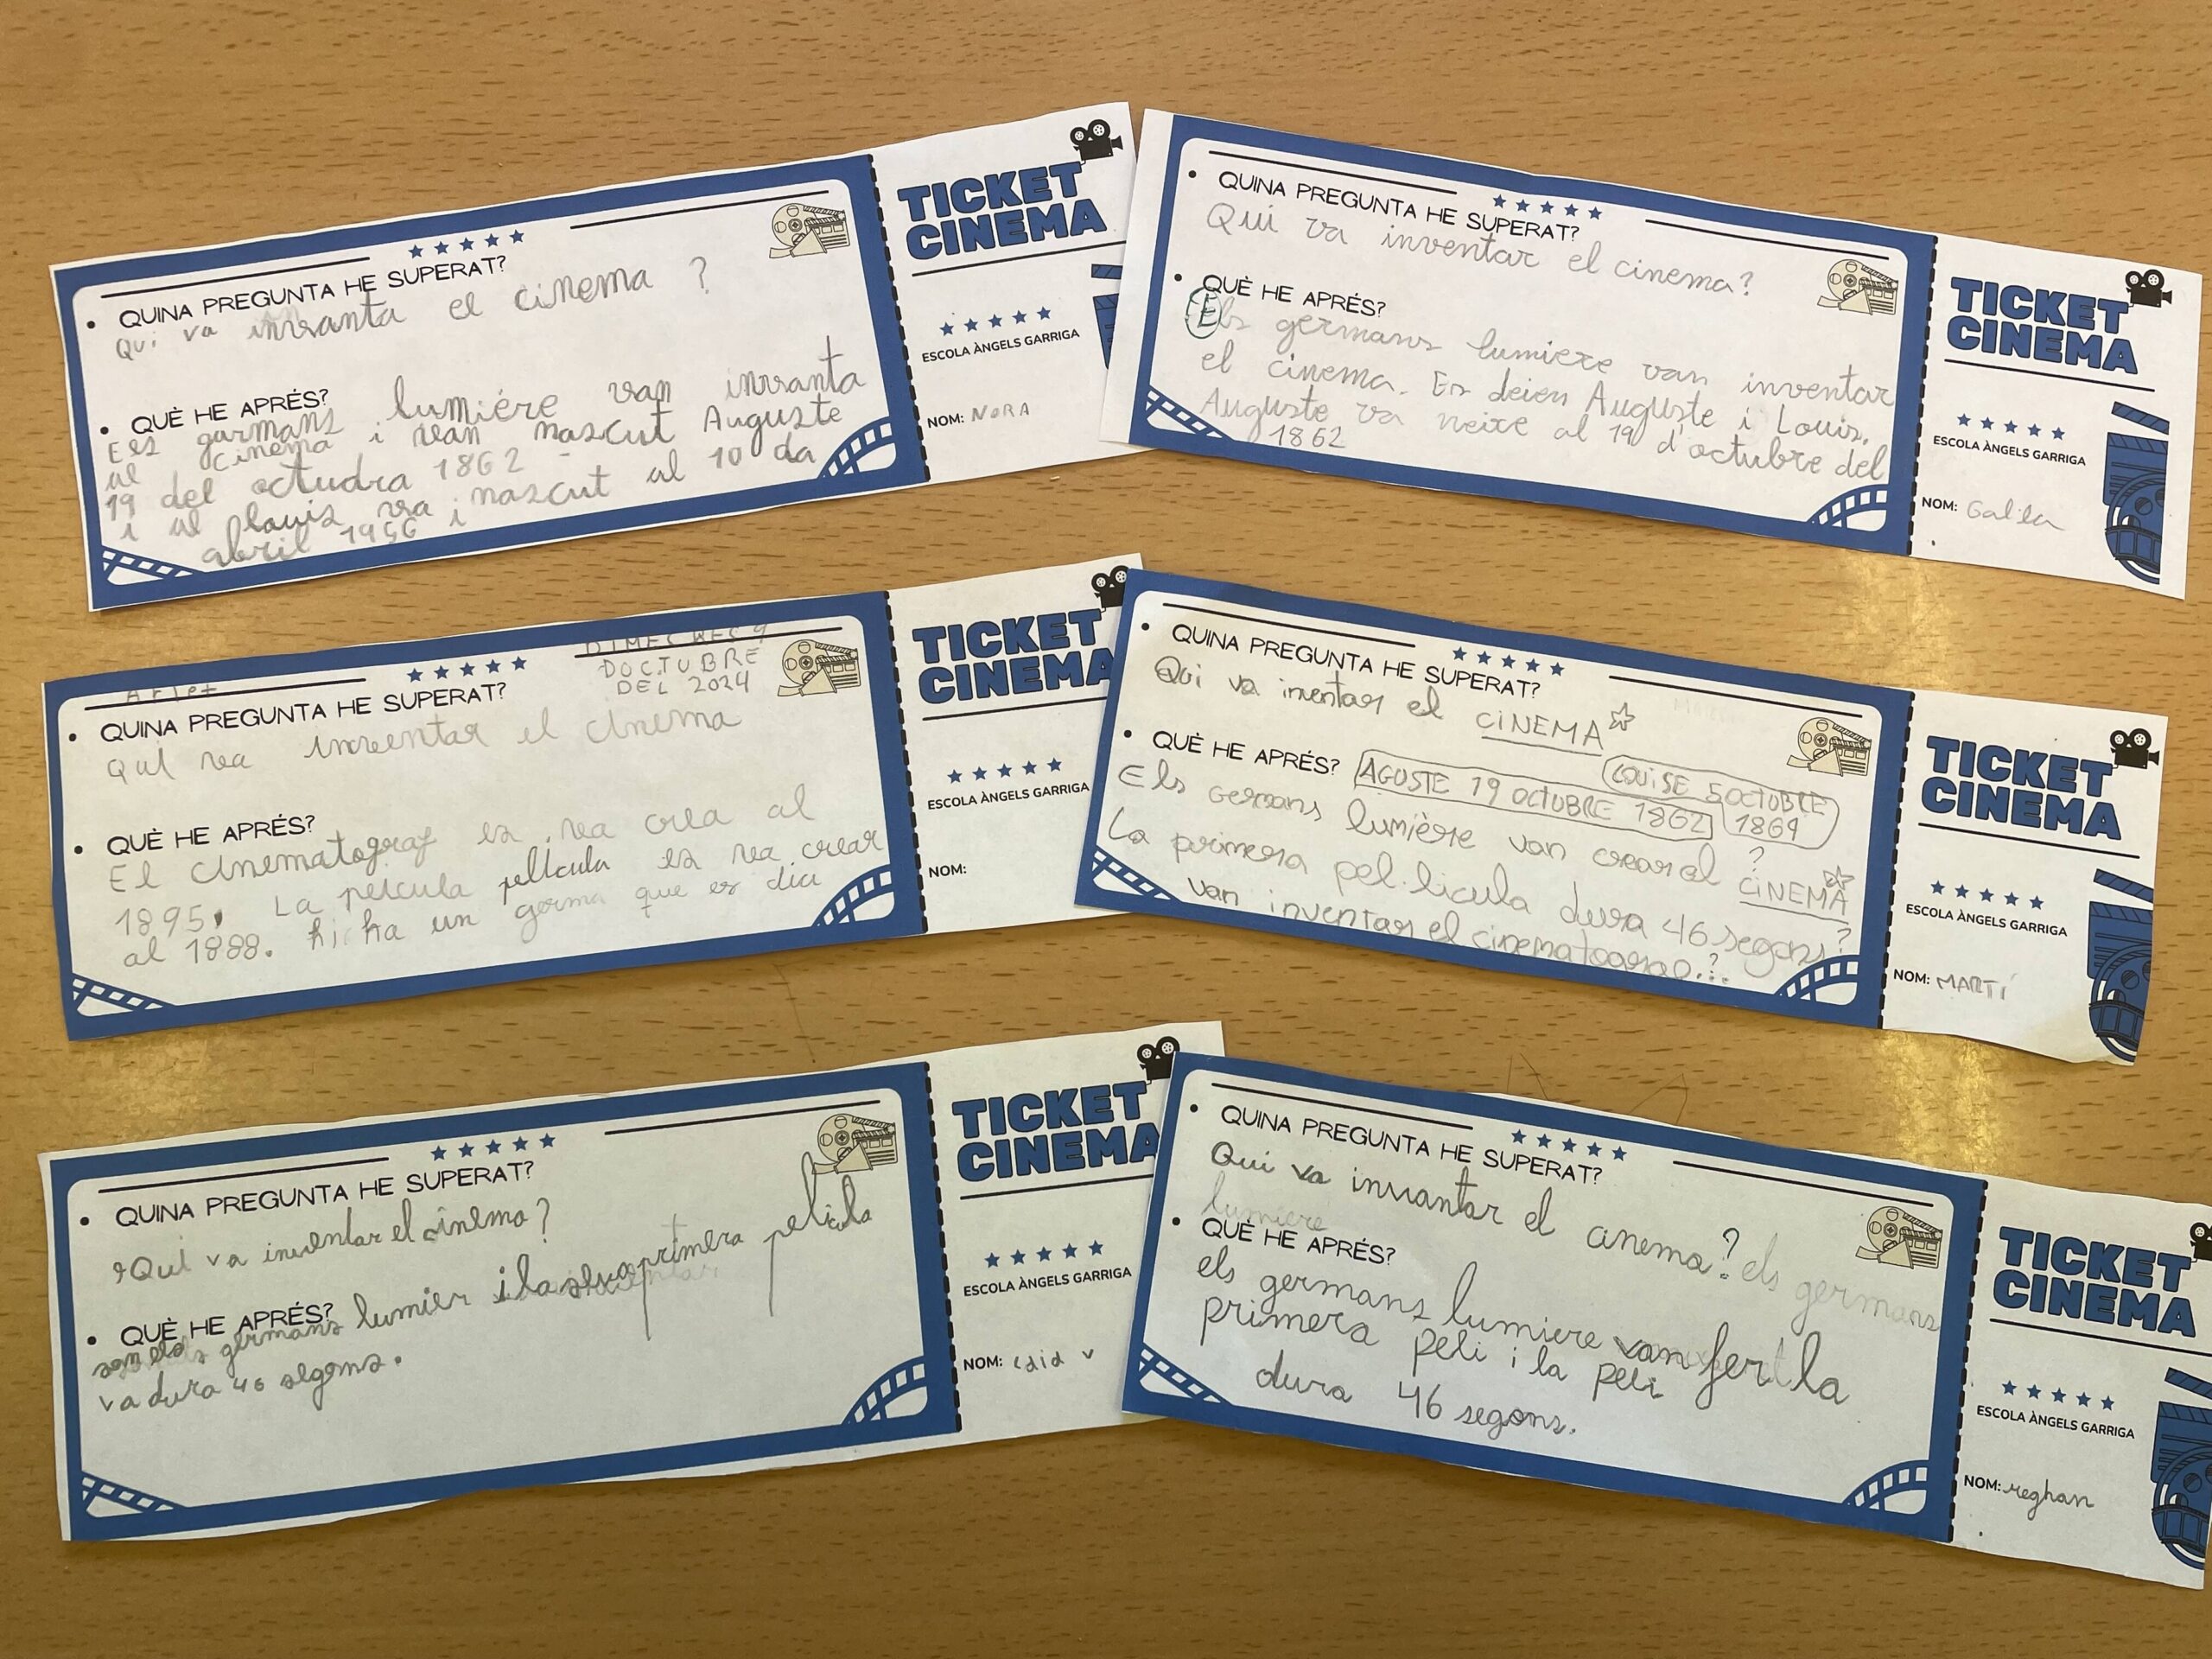 QUINA PREGUNTA HE SUPERAT?
Qui va invanta el cinema ?
QUÈ HE APRÉS?
Eels garmans lumiére van invanta
al cinema i van nascut Auguste
19 del octudra 1862 - nascut al 10 da
i al louis va i
abril 1956
TICKET
CINEMA
ESCOLA ÀNGELS GARRIGA
NOM: NORA
QUINA PREGUNTA HE SUPERAT?
Qui va inventar el cinema?
QUÈ HE APRÉS?
Els germans lumiere van inventar
el cinema. Es deien Auguste i Louis.
Auguste va neixe al 19 d'octubre del
1862
TICKET
CINEMA
ESCOLA ÀNGELS GARRIGA
NOM: Galila
Arlet
DIMECRES 9
DOCTUBRE
DEL 2024
QUINA PREGUNTA HE SUPERAT?
Qui va inventar el cinema
QUÈ HE APRÉS?
El cinematograf es va crea al
1895, La pelcula pellcula es va crear
al 1888. hi ha un germa que es dici
TICKET
CINEMA
ESCOLA ÀNGELS GARRIGA
NOM:
QUINA PREGUNTA HE SUPERAT?
Qui va inventar el CINEMA
QUÈ HE APRÉS? AGUSTE 19 OCTUBRE 1862 LOUISE 5 OCTUBRE 1869
Els germans lumière van crear el CINEMA?
La primera pel·licula dura 46 segons?
van inventar el cinematograo.?..
TICKET
CINEMA
ESCOLA ÀNGELS GARRIGA
NOM: MARTÍ
QUINA PREGUNTA HE SUPERAT?
Qui va inventar el cinema?
QUÈ HE APRÉS?
son els germans lumier i la seva primera pelicula
va dura 46 segons.
TICKET
CINEMA
ESCOLA ÀNGELS GARRIGA
NOM:
QUINA PREGUNTA HE SUPERAT?
Qui va invantar el cinema? els germans
lumiere
QUÈ HE APRÉS?
els germans lumiere van fer la
primera peli i la peli
dura 46 segons.
TICKET
CINEMA
ESCOLA ÀNGELS GARRIGA
NOM: reghan